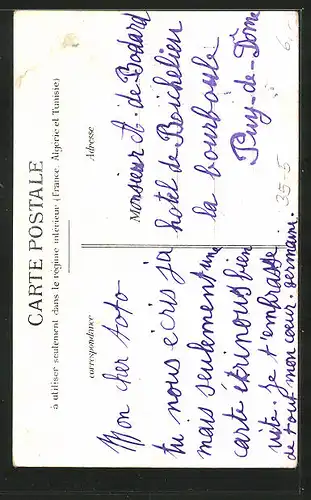 CARTE POSTALE
à utiliser seulement dans le régime intérieur (France, Algérie et Tunisie)
correspondance
Mon cher toto
tu nous écris ja
mais seulement une
carte écrinous bien
vite. Je t'embrasse
de tout mon coeur. germain.
Adresse
Monsieur A. de Bodard
hotel de Boichelieu
la bourboule
Puy-de-Dôme
35-5
6.-